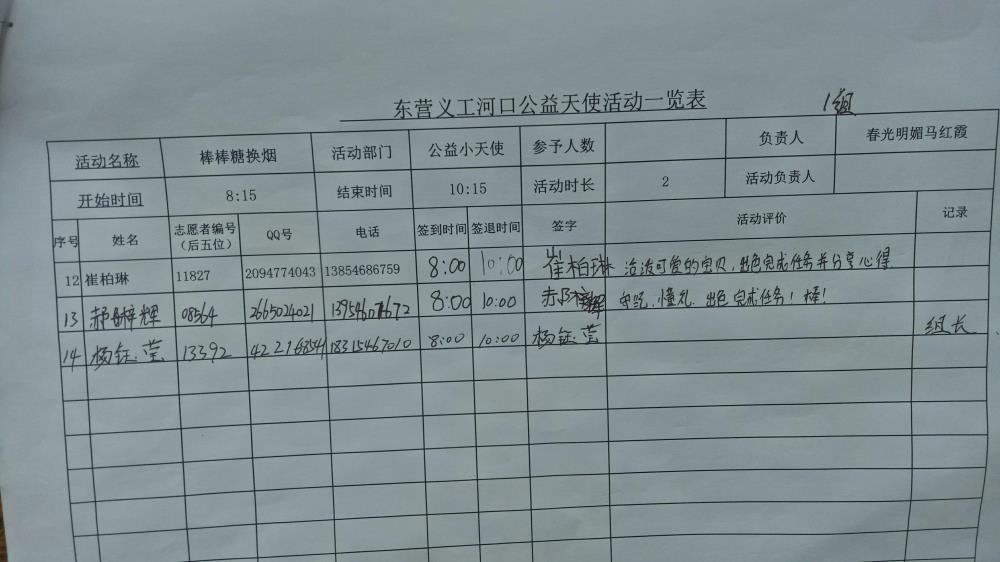 东营义工河口公益天使活动一览表 1组
活动名称 棒棒糖换烟 活动部门 公益小天使 参予人数 负责人 春光明媚马红霞
开始时间 8:15 结束时间 10:15 活动时长 2 活动负责人
序号 姓名 志愿者编号（后五位） QQ号 电话 签到时间 签退时间 签字 活动评价 记录
12 崔柏琳 11827 2094774043 13854686759 8:00 10:00 崔柏琳 活泼可爱的宝贝，出色完成任务并分享心得
13 郝梓辉 08564 2665024021 8:00 10:00 郝梓辉 守纪，懂礼，出色完成任务！棒！
14 杨钰莹 13392 18315467010 8:00 10:00 杨钰莹 组长